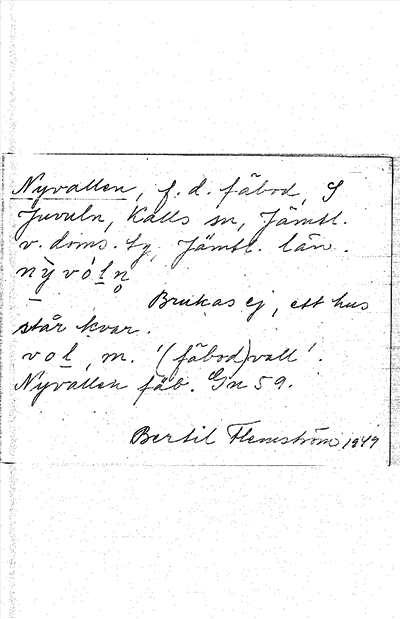 Nyvallen, f.d. fäbod, S
Juvuln, Kalls sn, Jämtl.
v. doms. tg, Jämtl. län.
nỳvóln̥
Brukas ej, ett hus
står kvar.
vol, m. '(fäbod)vall'.
Nyvallen fäb. Gn 59.
Bertil Flemström 1949